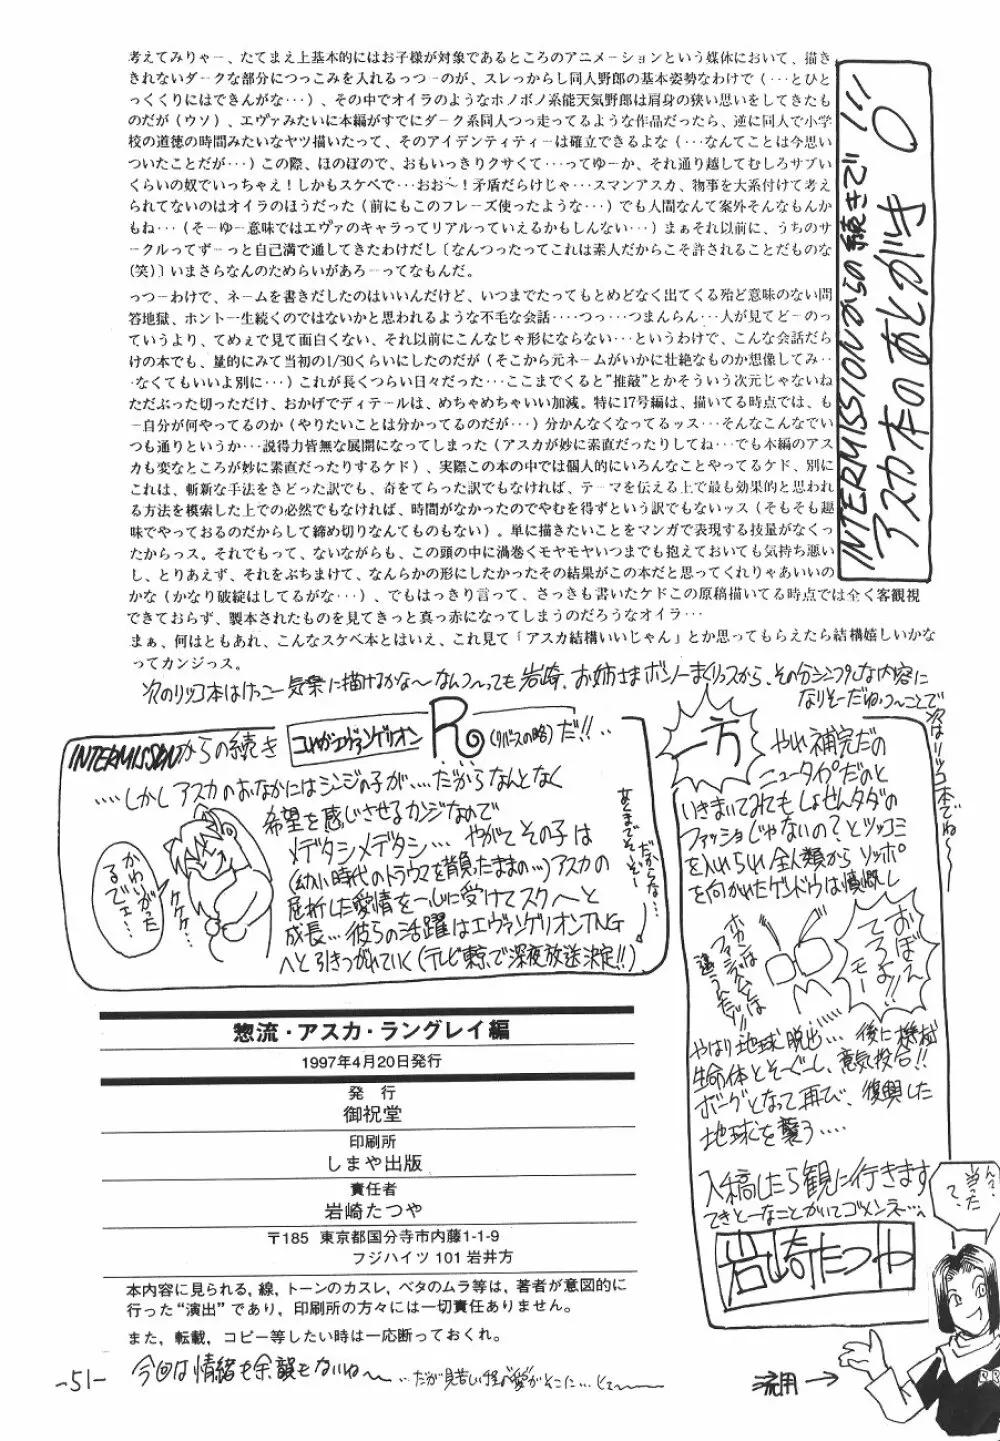 INTERMISSIONからの続きで!!!
アスカ本のあとがき
考えてみりゃー、たてまえ上基本的にはお子様が対象であるところのアニメーションという媒体において、描き
きれないダークな部分につっこみを入れるっつーのが、スレっからし同人野郎の基本姿勢なわけで(…とひと
っくくりにはできんがな…)、その中でオイラのようなホノボノ系能天気野郎は肩身の狭い思いをしてきたも
のだが(ウソ)、エヴァみたいに本編がすでにダーク系同人つっ走ってるような作品だったら、逆に同人で小学
校の道徳の時間みたいなヤツ描いたって、そのアイデンティティーは確立できるよな(…なんてことは今思い
ついたことだが…)この際、ほのぼので、おもいっきりクサくて…ってゆーか、それ通り越してむしろサブい
くらいの奴でいっちゃえ!しかもスケベで…おお〜!矛盾だらけじゃ…スマンアスカ、物事を大系付けて考え
られてないのはオイラのほうだった(前にもこのフレーズ使ったような…)でも人間なんて案外そんなもんか
もね…(そーゆー意味ではエヴァのキャラってリアルっていえるかもしんない…)まぁそれ以前に、うちのサ
ークルってずーっと自己満で通してきたわけだし〔なんつったってこれは素人だからこそ許されることだものな
(笑)〕いまさらなんのためらいがあろーってなもんだ。
っつーわけで、ネームを書きだしたのはいいんだけど、いつまでたってもとめどなく出てくる殆ど意味のない問
答地獄、ホント一生続くのではないかと思われるような不毛な会話‥‥つっ…つまんらん…人が見てどーのっ
ていうより、てめぇで見て面白くない、それ以前にこんなじゃ形にならない…というわけで、こんな会話だら
けの本でも、量的にみて当初の1/30くらいにしたのだが(そこから元ネームがいかに壮絶なものか想像してみ‥
なくてもいいよ別に…)これが長くつらい日々だった…ここまでくると"推敲"とかそういう次元じゃないね
ただぶった切っただけ、おかげでディテールは、めちゃめちゃいい加減。特に17号編は、描いてる時点では、も
ー自分が何やってるのか(やりたいことは分かってるのだが…)分かんなくなってるッス…そんなこんなでい
つも通りというか…説得力皆無な展開になってしまった(アスカが妙に素直だったりしてね…でも本編のアス
カも変なところが妙に素直だったりするケド)、実際この本の中では個人的にいろんなことやってるケド、別に
これは、斬新な手法をきどった訳でも、奇をてらった訳でもなければ、テーマを伝える上で最も効果的と思われ
る方法を模索した上での必然でもなければ、時間がなかったのでやむを得ずという訳でもないッス(そもそも趣
味でやっておるのだからして締め切りなんてものもない)。単に描きたいことをマンガで表現する技量がなくっ
たからっス。それでもって、ないながらも、この頭の中に渦巻くモヤモヤいつまでも抱えておいても気持ち悪い
し、とりあえず、それをぶちまけて、なんらかの形にしたかったその結果がこの本だと思ってくれりゃあいいの
かな(かなり破綻はしてるがな…)、でもはっきり言って、さっきも書いたケドこの原稿描いてる時点では全く客観視
できておらず、製本されたものを見てきっと真っ赤になってしまうのだろうなオイラ…
まぁ、何はともあれ、こんなスケベ本とはいえ、これ見て「アスカ結構いいじゃん」とか思ってもらえたら結構嬉しいかな
ってカンジっス。
次のリツコ本はけっこー気楽に描けるかな〜なんつ〜っても岩崎、お姉さまボンノーまくりっスから、その分シンプルな内容に
なりそーだね・つ〜ことで
次はリツコ本でね〜
INTERMISSIONからの続き
これがエヴァンゲリオン
R(リバースの略)だ!!‥
‥‥しかしアスカのおなかにはシンジの子が‥‥だからなんとなく
希望を感じさせるカンジなので
メデタシメデタシ… やがてその子は
(幼い時代のトラウマを背負ったままの…)アスカの
屈折した愛情を一心に受けてスクへと
成長…彼らの活躍はエヴァンゲリオンTNG
へと引きつがれていく(テレビ東京で深夜放送決定!!)
かわりがった
るでェ…
ケケケ…
だからな…
一方
やれ補完だの
ニュータイプだのと
いきまいてみてもしょせんタダの
ファッショじゃないの?とツッコミ
を入れられ全人類からソッポ
を向かれたゲンドウは憤慨し
おぼえ
てろよ!!
モー
やはり地球脱出… 後に機械
生命体とそーぐーし、意気投合!!
ボーグとなって再び、復興した
地球を襲う‥‥
入稿したら観に行きます
てきとーなことかいてゴメンネ…
岩崎たつや
惣流・アスカ・ラングレイ編
1997年4月20日発行
発 行
御祝堂
印刷所
しまや出版
責任者
岩崎たつや
〒185 東京都国分寺市内藤1-1-9
フジハイツ 101 岩井方
本内容に見られる, 線, トーンのカスレ, ベタのムラ等は, 著者が意図的に
行った“演出”であり, 印刷所の方々には一切責任ありません。
また, 転載, コピー等したい時は一応断っておくれ。
今回は情緒も余韻もないね〜
流用→
-51-